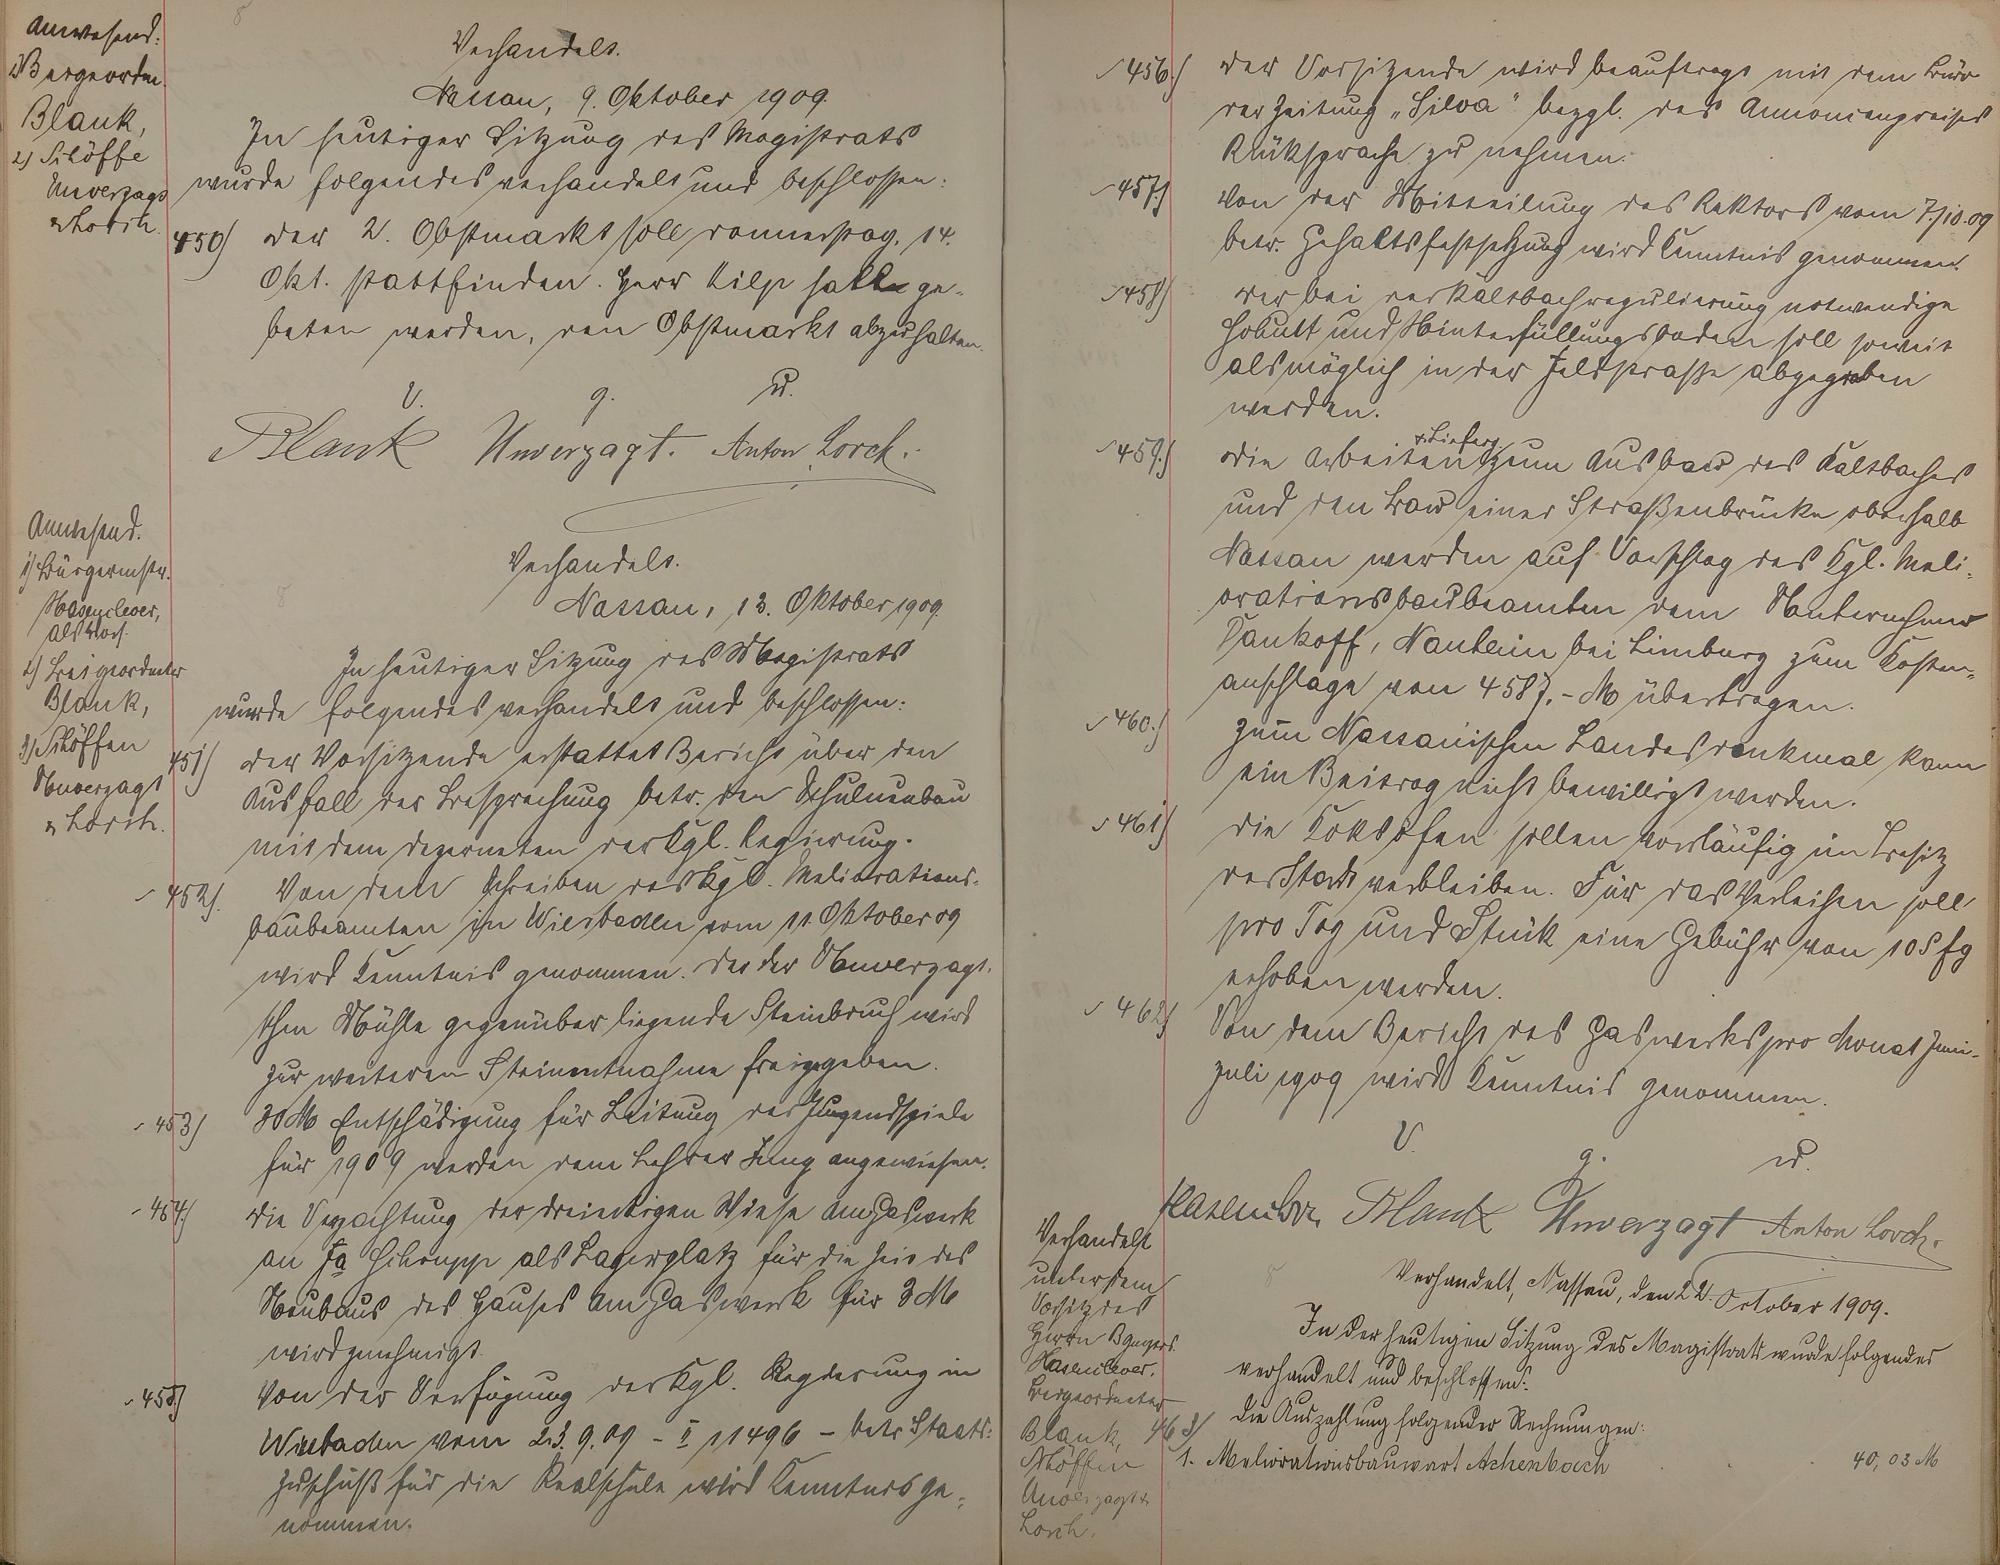 Anwesend:
1) Beigeordn.
Blank,
2) Schöffe
Unverzagt
u. Lorch.
Verhandelt.
Nassau, 9. Oktober 1909.
In heutiger Sitzung des Magistrats
wurde folgendes verhandelt und beschlossen:
450) Der 2. Obstmarkt soll Donnerstag, 14.
Okt. stattfinden. Herr Kilp soll ge-
beten werden, den Obstmarkt abzuhalten.
V. g. u.
Blank Unverzagt. Anton Lorch.
Anwesend.
1) Bürgermstr.
Hasenclever,
als Vors.
2) Beigeordneter
Blank,
3) Schöffen
Unverzagt
u. Lorch.
Verhandelt.
Nassau, 13. Oktober 1909.
In heutiger Sitzung des Magistrats
wurde folgendes verhandelt und beschlossen:
451) Der Vorsitzende erstattet Bericht über den
Ausfall der Besprechung betr. den Schulneubau
mit dem Dezernenten der Kgl. Regierung.
452) Von dem Schreiben des Kgl. Meliorations-
baubeamten in Wiesbaden vom 11 Oktober 09
wird Kenntnis genommen. Der der Unverzagt-
schen Mühle gegenüber liegende Steinbruch wird
zur weiteren Steinentnahme freigegeben.
453) 30 M Entschädigung für Leitung der Jugendspiele
für 1909 werden dem Lehrer Jung angewiesen.
454) Die Verpachtung der dreieckigen Wiese am Gaswerk
an Fa als Lagerplatz für die Zeit des
Neubaus des Hauses am Gaswerk für 3 M
wird genehmigt.
455) Von der Verfügung der Kgl. Regierung in
Wiesbaden vom 23.9.09 – II 11496 – betr Staats-
zuschuß für die Realschule wird Kenntnis ge-
nommen.
456) Der Vorsitzende wird beauftragt mit dem Büro
der Zeitung „Silva" bezgl. des Annoncenpreises
Rüksprache zu nehmen.
457) Von der Mitteilung des Rektors vom 7./10.09
betr. Gehaltsfestsetzung wird Kenntnis genommen.
458) Der bei der Kaltbachregulierung notwendige
Schutt und Hinterfüllungsboden soll soweit
als möglich in der Feldstraße abgegraben
werden.
459) Die Arbeiten u. Liefer. zum Ausbau des Kaltbaches
und den Bau einer Straßenbrücke oberhalb
Nassau werden auf Vorschlag des Kgl. Meli-
orationsbaubeamten dem Unternehmer
Pankoff, Nauheim bei Limburg zum Kosten-
anschlage von 4587.- M übertragen.
460.) Zum Nassauischen Landesdenkmal kann
ein Beitrag nicht bewilligt werden.
461) Die Koksöfen sollen vorläufig im Besitz
der Stadt verbleiben. Für das Verleihen soll
pro Tag und Stück eine Gebühr von 10 Pfg
erhoben werden.
462) Von dem Bericht des Gaswerks pro Monat Juni-
Juli 1909 wird Kenntnis genommen.
V. g. u.
Hasenclever Blank Unverzagt Anton Lorch.
Verhandelt
unter dem
Vorsitz des
Herrn Bürgerm.
Hasenclever,
Beigeordneter
Blank,
Schöffen
Unverzagt u.
Lorch.
Verhandelt, Nassau, den 22. October 1909.
In der heutigen Sitzung des Magistrats wurde folgendes
verhandelt und beschlossen:
463) Die Auszahlung folgender Rechnungen:
1. Meliorationsbauwart Achenbach 40,03 M